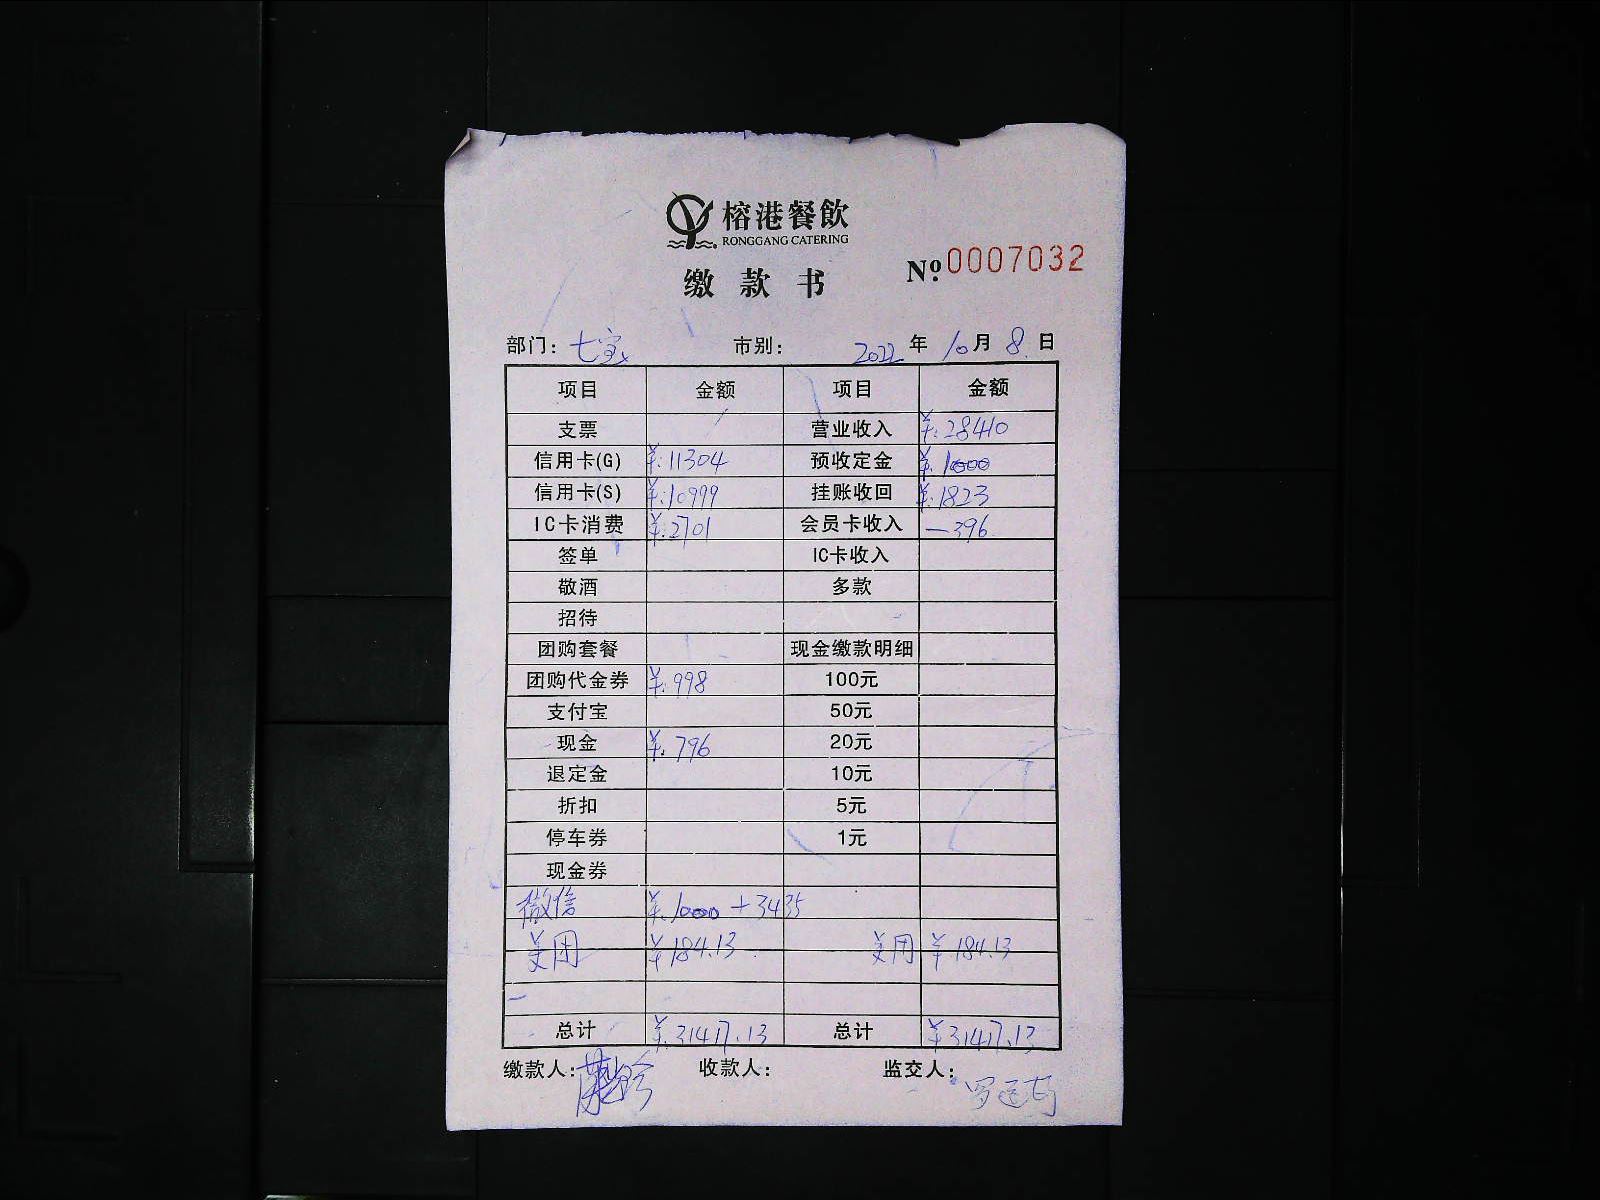 榕港餐飲
RONGGANG CATERING
缴款书
№ 0007032
部门: 七宝 市别: 2022 年 10 月 8 日
项目 金额 项目 金额
支票 营业收入 ¥:28410
信用卡(G) ¥:11304 预收定金 ¥:1000
信用卡(S) ¥:10999 挂账收回 ¥:1823
IC卡消费 ¥:2701 会员卡收入 —396
签单 IC卡收入
敬酒 多款
招待
团购套餐 现金缴款明细
团购代金券 ¥:998 100元
支付宝 50元
现金 ¥:796 20元
退定金 10元
折扣 5元
停车券 1元
现金券
微信 ¥:1000+3435
美团 ¥184.13 美团 ¥184.13
总计 ¥:31417.13 总计 ¥31417.13
缴款人: 收款人: 监交人: